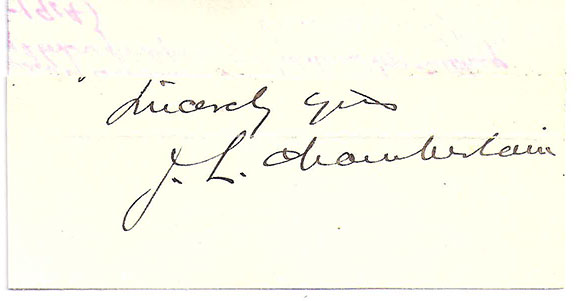 Sincerely yours
J. L. Chamberlain